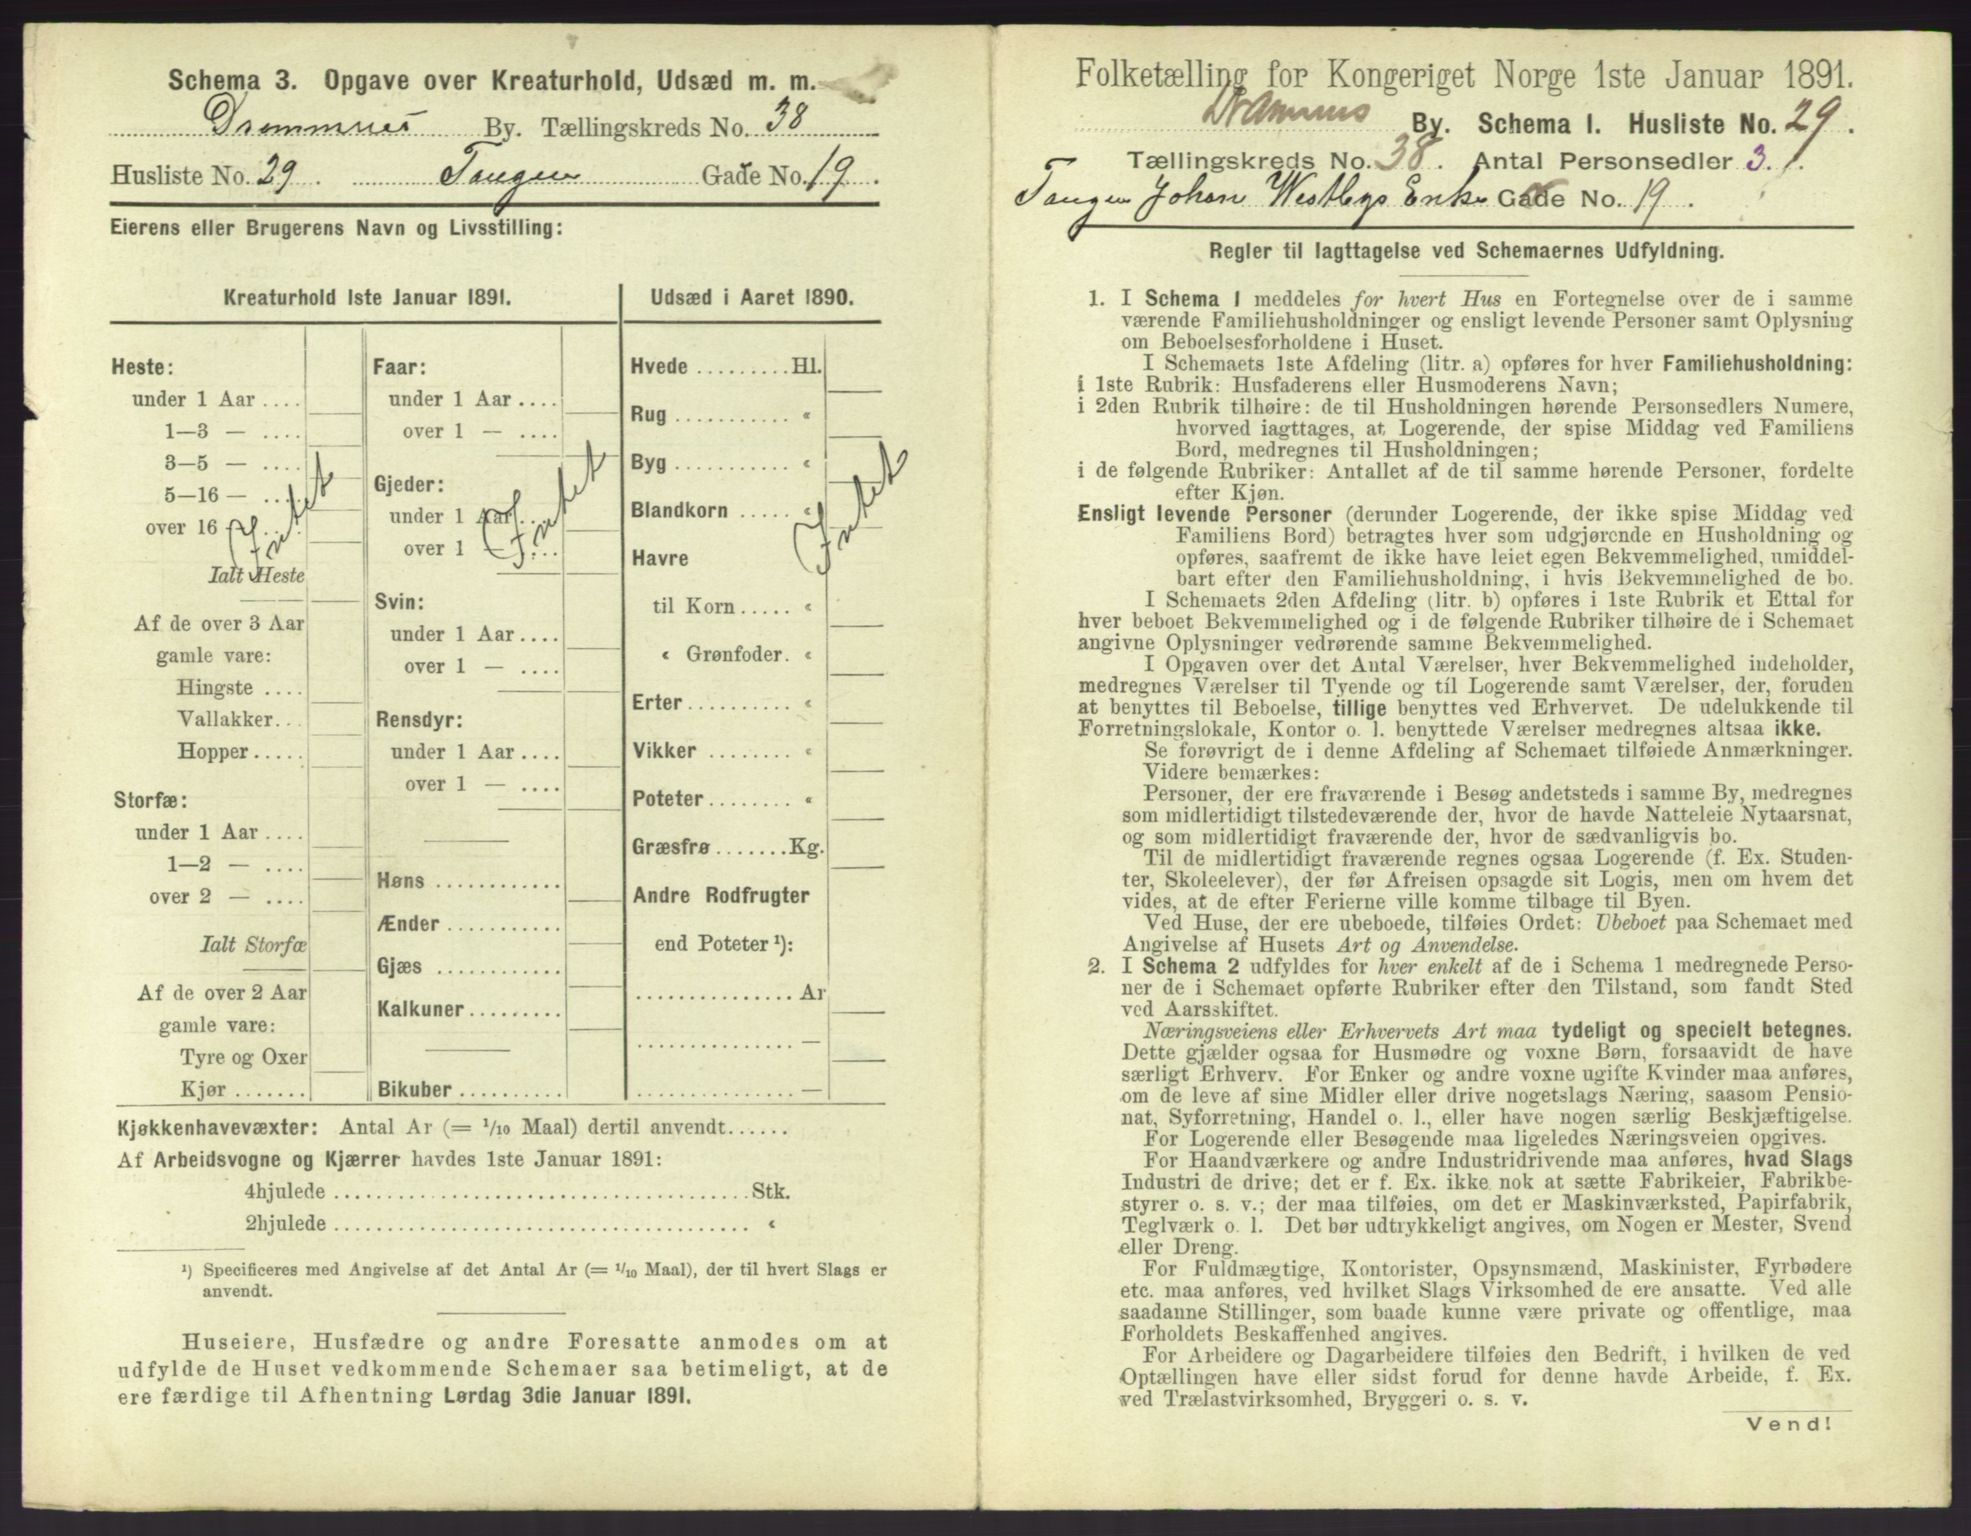 Schema 3. Opgave over Kreaturhold, Udsæd m. m.
Drammens By. Tællingskreds No. 38
Husliste No. 29. Tangen Gade No. 19.
Eierens eller Brugerens Navn og Livsstilling:
Kreaturhold 1ste Januar 1891.
Heste:
under 1 Aar ....
1—3 — ....
3—5 — ....
5—16 — ....
over 16 — ....
Intet
Ialt Heste
Af de over 3 Aar
gamle vare:
Hingste ....
Vallakker...
Hopper.....
Storfæ:
under 1 Aar ....
1—2 — ....
over 2 — ....
Ialt Storfæ
Af de over 2 Aar
gamle vare:
Tyre og Oxer
Kjør .......
Faar:
under 1 Aar ....
over 1 — ....
Gjeder:
under 1 Aar ....
over 1 — ....
Intet
Svin:
under 1 Aar ....
over 1 — ....
Rensdyr:
under 1 Aar ....
over 1 — ....
Høns ............
Ænder ...........
Gjæs ............
Kalkuner.........
Bikuber ..........
Udsæd i Aaret 1890.
Hvede .........Hl.
Rug ........... «
Byg ........... «
Blandkorn ..... «
Intet
Havre
til Korn..... «
« Grønfoder. «
Erter.......... «
Vikker ........ «
Poteter........ «
Græsfrø .......Kg.
Andre Rodfrugter
end Poteter ¹):
............... Ar
............... —
............... —
Kjøkkenhavevæxter: Antal Ar (= 1/10 Maal) dertil anvendt......
Af Arbeidsvogne og Kjærrer havdes 1ste Januar 1891:
4hjulede ........................................ Stk.
2hjulede ........................................ «
¹) Specificeres med Angivelse af det Antal Ar (= 1/10 Maal), der til hvert Slags er
anvendt.
Huseiere, Husfædre og andre Foresatte anmodes om at
udfylde de Huset vedkommende Schemaer saa betimeligt, at de
ere færdige til Afhentning Lørdag 3die Januar 1891.
Folketælling for Kongeriget Norge 1ste Januar 1891.
Drammens By. Schema I. Husliste No. 29.
Tællingskreds No. 38. Antal Personsedler 3.
Tangen Johan Westbys Enke Gade No. 19.
Regler til Iagttagelse ved Schemaernes Udfyldning.
1. I Schema 1 meddeles for hvert Hus en Fortegnelse over de i samme
værende Familiehusholdninger og ensligt levende Personer samt Oplysning
om Beboelsesforholdene i Huset.
I Schemaets 1ste Afdeling (litr. a) opføres for hver Familiehusholdning:
i 1ste Rubrik: Husfaderens eller Husmoderens Navn;
i 2den Rubrik tilhøire: de til Husholdningen hørende Personsedlers Numere,
hvorved iagttages, at Logerende, der spise Middag ved Familiens
Bord, medregnes til Husholdningen;
i de følgende Rubriker: Antallet af de til samme hørende Personer, fordelte
efter Kjøn.
Ensligt levende Personer (derunder Logerende, der ikke spise Middag ved
Familiens Bord) betragtes hver som udgjørende en Husholdning og
opføres, saafremt de ikke have leiet egen Bekvemmelighed, umiddel-
bart efter den Familiehusholdning, i hvis Bekvemmelighed de bo.
I Schemaets 2den Afdeling (litr. b) opføres i 1ste Rubrik et Ettal for
hver beboet Bekvemmelighed og i de følgende Rubriker tilhøire de i Schemaet
angivne Oplysninger vedrørende samme Bekvemmelighed.
I Opgaven over det Antal Værelser, hver Bekvemmelighed indeholder,
medregnes Værelser til Tyende og til Logerende samt Værelser, der, foruden
at benyttes til Beboelse, tillige benyttes ved Erhvervet. De udelukkende til
Forretningslokale, Kontor o. l. benyttede Værelser medregnes altsaa ikke.
Se forøvrigt de i denne Afdeling af Schemaet tilføiede Anmærkninger.
Videre bemærkes:
Personer, der ere fraværende i Besøg andetsteds i samme By, medregnes
som midlertidigt tilstedeværende der, hvor de havde Natteleie Nytaarsnat,
og som midlertidigt fraværende der, hvor de sædvanligvis bo.
Til de midlertidigt fraværende regnes ogsaa Logerende (f. Ex. Studen-
ter, Skoleelever), der før Afreisen opsagde sit Logis, men om hvem det
vides, at de efter Ferierne ville komme tilbage til Byen.
Ved Huse, der ere ubeboede, tilføies Ordet: Ubeboet paa Schemaet med
Angivelse af Husets Art og Anvendelse.
2. I Schema 2 udfyldes for hver enkelt af de i Schema 1 medregnede Perso-
ner de i Schemaet opførte Rubriker efter den Tilstand, som fandt Sted
ved Aarsskiftet.
Næringsveiens eller Erhvervets Art maa tydeligt og specielt betegnes.
Dette gjælder ogsaa for Husmødre og voxne Børn, forsaavidt de have
særligt Erhverv. For Enker og andre voxne ugifte Kvinder maa anføres,
om de leve af sine Midler eller drive nogetslags Næring, saasom Pensio-
nat, Syforretning, Handel o. l., eller have nogen særlig Beskjæftigelse.
For Logerende eller Besøgende maa ligeledes Næringsveien opgives.
For Haandværkere og andre Industridrivende maa anføres, hvad Slags
Industri de drive; det er f. Ex. ikke nok at sætte Fabrikeier, Fabrikbe-
styrer o. s. v.; der maa tilføies, om det er Maskinværksted, Papirfabrik,
Teglværk o. l. Det bør udtrykkeligt angives, om Nogen er Mester, Svend
eller Dreng.
For Fuldmægtige, Kontorister, Opsynsmænd, Maskinister, Fyrbødere
etc. maa anføres, ved hvilket Slags Virksomhed de ere ansatte. Ved alle
saadanne Stillinger, som baade kunne være private og offentlige, maa
Forholdets Beskaffenhed angives.
For Arbeidere og Dagarbeidere tilføies den Bedrift, i hvilken de ved
Optællingen have eller sidst forud for denne havde Arbeide, f. Ex.
ved Trælastvirksomhed, Bryggeri o. s. v.
Vend!